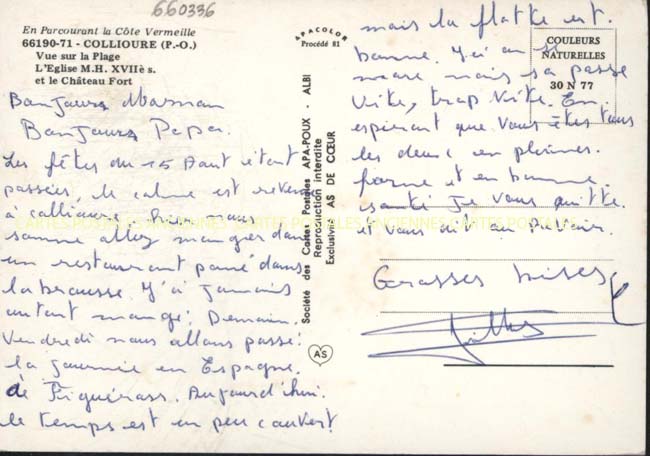 660336
En Parcourant la Côte Vermeille
66190-71 - COLLIOURE (P.-O.)
Vue sur la Plage
L'Eglise M.H. XVIIè s.
et le Château Fort
Bonjours Maman
Bonjours Papa.
Les fêtes du 15 Aout étant
passées, le calme est revenu
à collioure. Hier nous
somme allez manger dans
un restaurant paumé dans
la brousse. J'ai jamais
autant mangé. Demain
Vendredi nous allons passé
la journée en Espagne.
à Figuérass. Aujourd'hui.
le temps est un peu couvert
APACOLOR
Procédé 81
Société des Cartes Postales APA-POUX - ALBI
Reproduction interdite
Exclusivité AS DE CŒUR
AS
COULEURS
NATURELLES
30 N 77
mais la flotte est.
bonne. J'ai
mare mais sa passe
Vite, trop Vite. En
espérant que Vous êtes tous
les deux en pleines
forme et en bonne
santé Je vous quitte.
et vous dit au revoir.
Grosses bises
Gilles
CARTES POSTALES ANCIENNES CARTES POSTALES